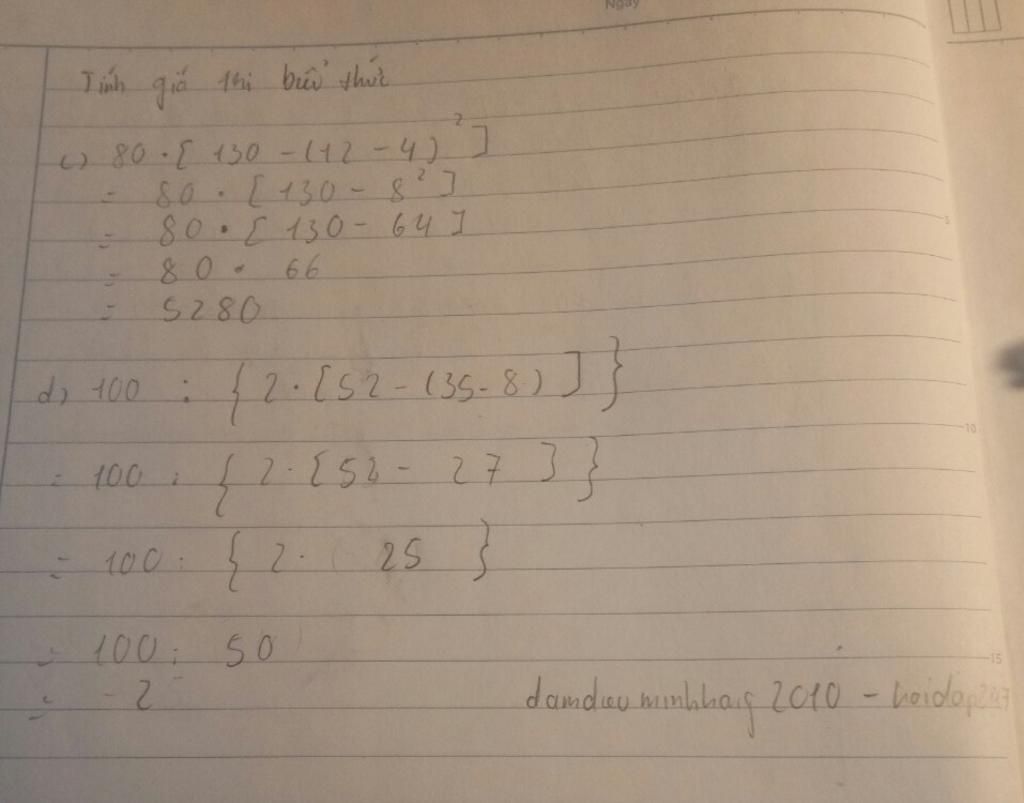 Ngày
Tính giá thi biểu thức
c) 80 · [ 130 - (12 - 4)² ]
= 80 · [ 130 - 8² ]
= 80 · [ 130 - 64 ]
= 80 · 66
= 5280
d) 100 : { 2 · [ 52 - (35 - 8) ] }
= 100 : { 2 · [ 52 - 27 ] }
= 100 : { 2 · 25 }
= 100 : 50
= 2
2010 - hoidap247
5
10
15